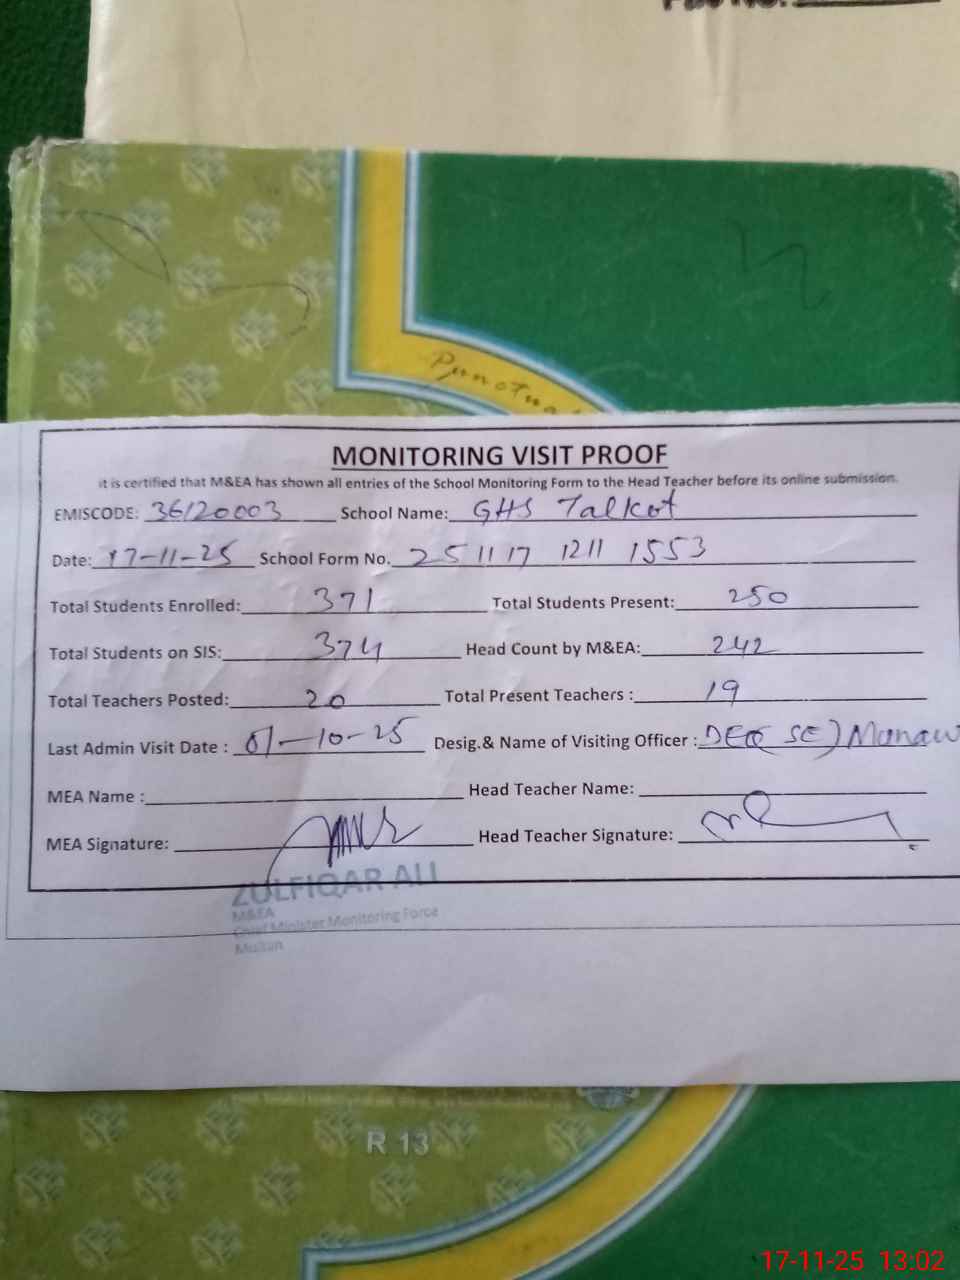 Punctual
MONITORING VISIT PROOF
it is certified that M&EA has shown all entries of the School Monitoring Form to the Head Teacher before its online submission.
EMISCODE: 36120003 School Name: GHS Talkot
Date: 17-11-25 School Form No. 25 11 17 1211 1553
Total Students Enrolled: 371 Total Students Present: 250
Total Students on SIS: 374 Head Count by M&EA: 242
Total Teachers Posted: 20 Total Present Teachers : 19
Last Admin Visit Date : 01-10-25 Desig.& Name of Visiting Officer : DEO( SE)
MEA Name : Head Teacher Name:
MEA Signature: Head Teacher Signature:
ZULFIQAR ALI
M&EA
Chief Minister Monitoring Force
Multan
R 13
17-11-25 13:02